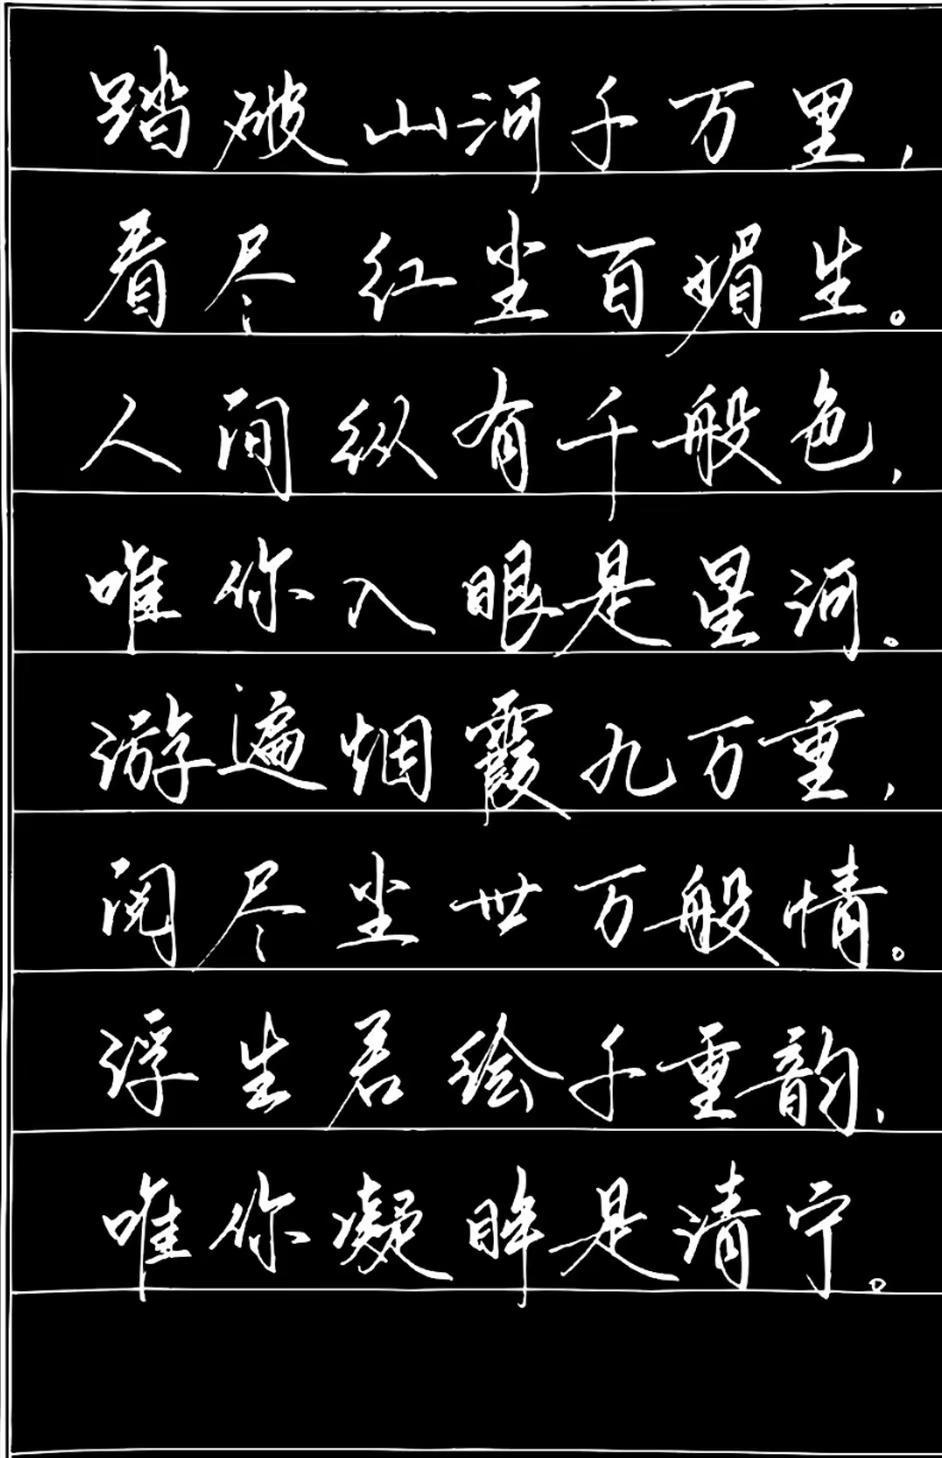 踏破山河千万里，
看尽红尘百媚生。
人间纵有千般色，
唯你入眼是星河。
游遍烟霞九万重，
阅尽尘世万般情。
浮生若绘千重韵，
唯你凝眸是清宁。